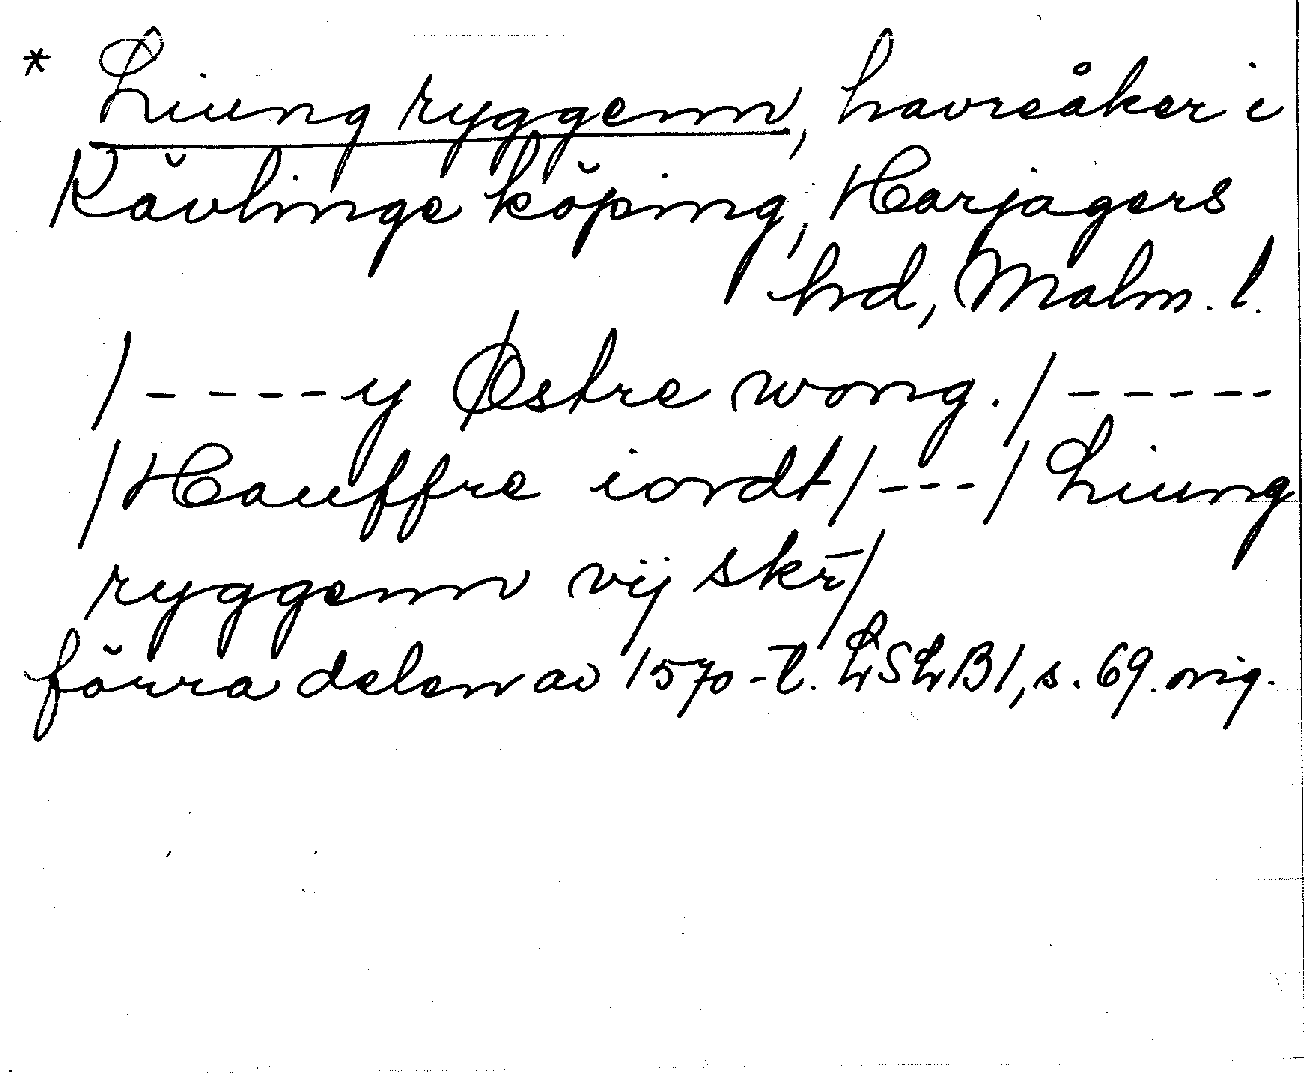 * Liung ryggenn, havreåker i
Kävlinge köping, Harjagers
hd, Malm. l.
/-----y Østre wong./-----
/Hauffre iordt/---/Liung
ryggenn vij skr̄/
förra delen av 1570-t. LSLB1, s. 69. orig.